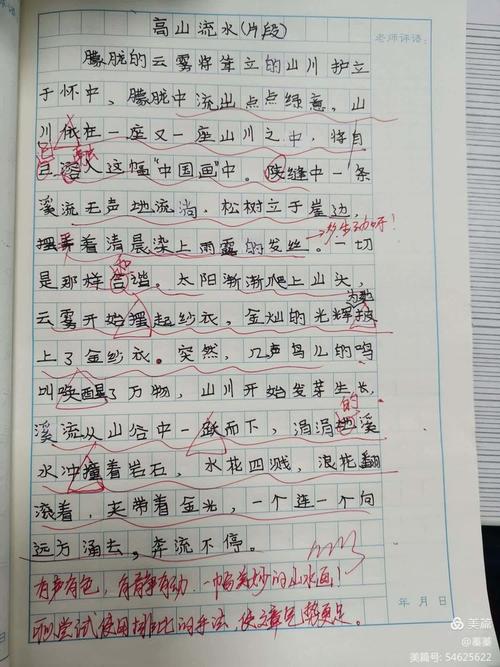 高山流水(片段)
老师评语:
朦胧的云雾将耸立的山川护立
于怀中、朦胧中流出点点绿意，山
川依在一座又一座山川之中，将自
己溶入这幅"中国画"中。陕缝中一条
溪流无声地流淌，松树立于崖边，
摆弄着清晨染上雨露的发丝。一切
多生动呀！
是那样合谐。太阳渐渐爬上山头，
和
云雾开始摆起纱衣，金灿的光辉披
上了金纱衣。突然，几声鸟儿的鸣
叫唤醒了万物，山川开始发芽生长，
溪流从山谷中一跃而下，涓涓地溪
的
水冲撞着岩石，水花四溅，浪花翻
滚着，夹带着金光，一个连一个向
远方涌去，奔流不停。
有声有色，有静有动，一幅美妙的山水画！
可尝试使用排比的手法，使文章气势更足。
年 月 日
美篇
@蓁蓁
美篇号: 54625622